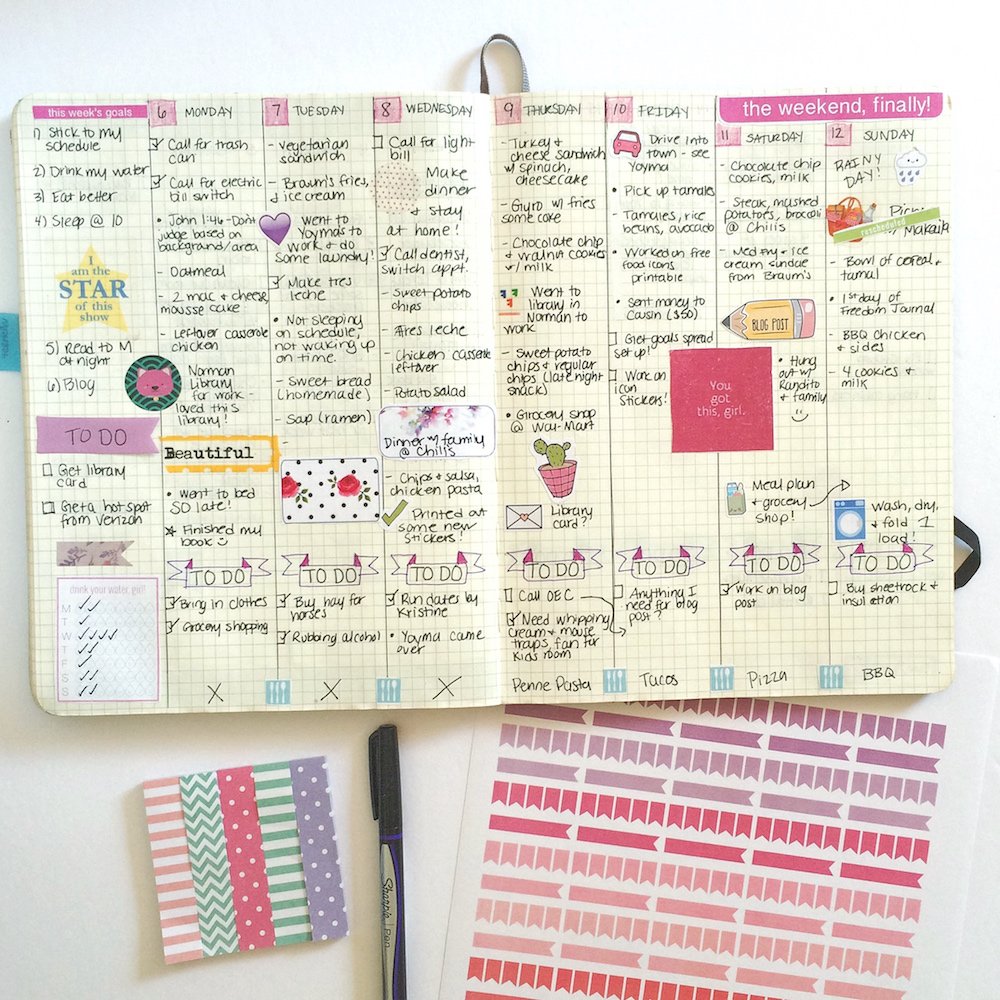 this week's goals
1) Stick to my
schedule
2) Drink my water
3) Eat better
4) Sleep @ 10
I am the
STAR
of this
show
5) Read to M
at night
6) Blog
TO DO
Get library
card
Get a hot spot
from Verizon
drink your water, girl!
M
T
W
T
F
S
S
6 MONDAY
Call for trash
can
Call for electric
bill switch
• John 1:46 - Don't
judge based on
background/area
- Oatmeal
- 2 mac & cheese,
mousse cake
- Leftover casserole
chicken
Norman
Library
for work -
loved this
library!
Beautiful
• Went to bed
SO late!
Finished my
book
TO DO
Bring in clothes
Grocery shopping
X
7 TUESDAY
- Vegetarian
sandwich
- Braum's fries,
& ice cream
Went to
Yoymas to
work & do
some laundry!
Make tres
leche
• Not sleeping
on schedule
not waking up
on time.
- Sweet bread
(homemade)
- Soup (ramen)
-
TO DO
Buy hay for
horses
Rubbing alcohol
X
8 WEDNESDAY
Call for light
bill
Make
dinner
& stay
at home!
Call dentist,
switch appt.
- Sweet potato
chips
- Tres leche
- Chicken casserole
leftover
- Potato salad
Dinner w/ family
@ Chili's
- Chips & salsa,
chicken pasta
Printed out
some new
stickers!
TO DO
Run dates by
Kristine
• Yoyma came
over
X
9 THURSDAY
- Turkey &
cheese sandwich
w/ spinach,
cheesecake
- Gyro w/ fries
some cake
- Chocolate chip
& walnut cookies
w/ milk
Went to
library in
Norman to
work
- Sweet potato
chips & regular
chips (late night
snack)
• Grocery shop
@ Wal-Mart
Library
card?
TO DO
Call OEC
Need whipping
cream & mouse
traps, fan for
kids room
Penne Pasta
10 FRIDAY
Drive into
town - see
Yoyma
• Pick up tamales
- Tamales, rice
beans, avocado
• Worked on free
food icons
printable
• Sent money to
cousin ($50)
Get goals spread
set up!
Work on
icon
stickers!
TO DO
Anything I
need for blog
post?
Tacos
the weekend, finally!
11 SATURDAY
- Chocolate chip
cookies, milk
- Steak, mashed
potatoes, brocoli
@ Chili's
- Med fry & ice
cream sundae
from Braum's
BLOG POST
You
got
this, girl.
• Hung
out w/
Randito
& family
Meal plan
& grocery
shop!
TO DO
Work on blog
post
Pizza
12 SUNDAY
RAINY
DAY!
rescheduled
w/ Makaila
- Bowl of cereal &
tamal
• 1st day of
Freedom Journal
- BBQ chicken
& sides
- 4 cookies &
milk
Wash, dry,
& fold 1
load!
TO DO
Buy sheetrock &
insulation
BBQ
Sharpie Pen